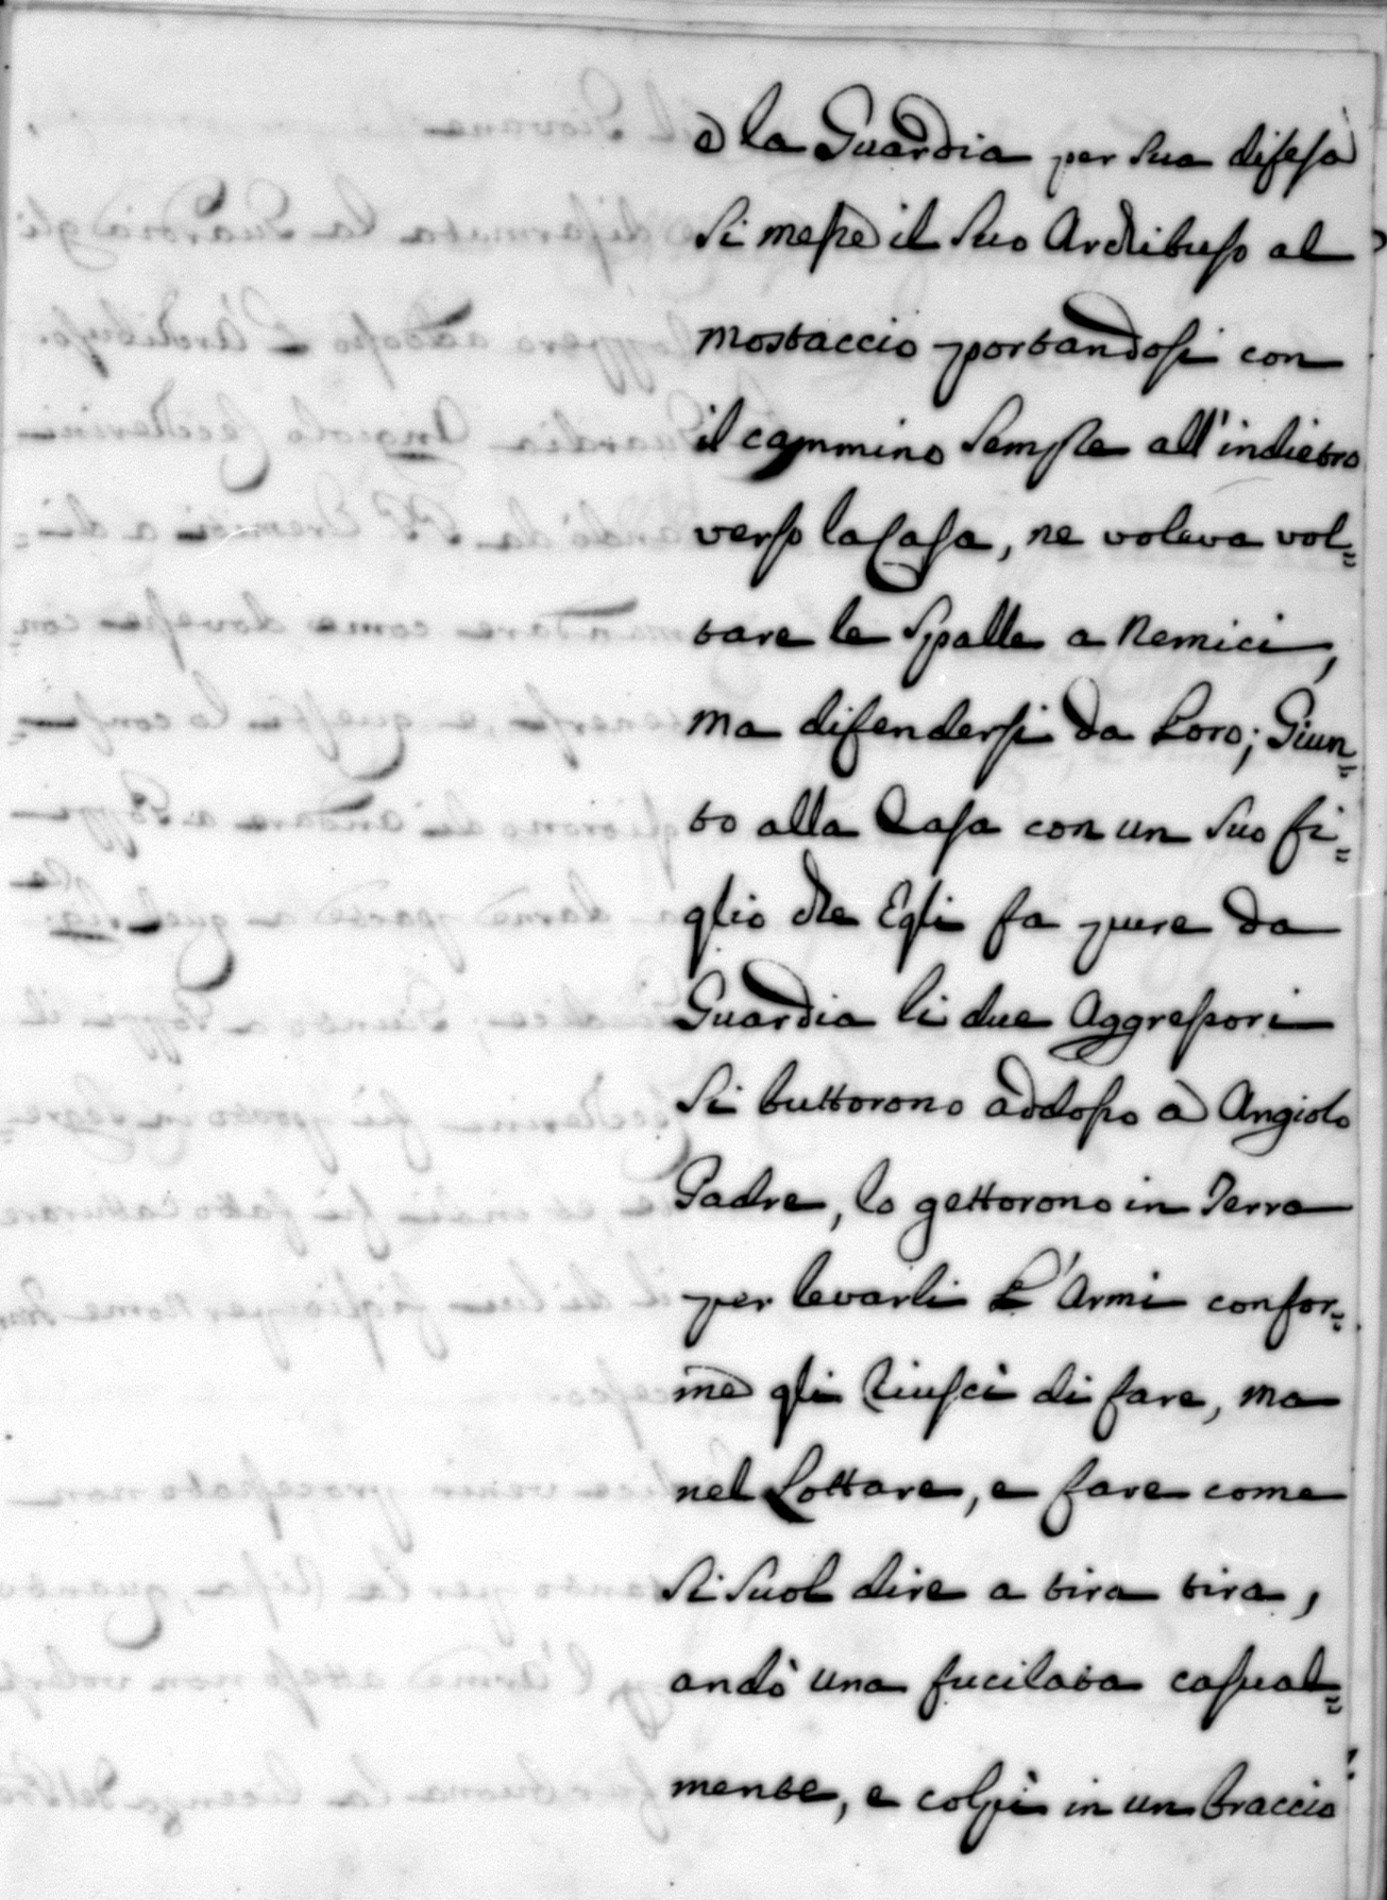 e la Guardia per sua difesa
si messe il suo Archibuso al
mostaccio portandosi con
il cammino sempre all'indietro
verso la Casa, ne voleva vol=
tare le Spalle a Nemici,
ma difendersi da Loro; Giun=
to alla Casa con un suo fi=
glio che Egli fa pure da
Guardia li due Aggressori
si buttorono addosso à Angiolo
Padre, lo gettorono in Terra
per levarli L'Armi confor=
me gli riuscì di fare, ma
nel Lottare, e fare come
si suol dire a tira tira,
andò una fucilata casual=
mente, e colpì in un braccio